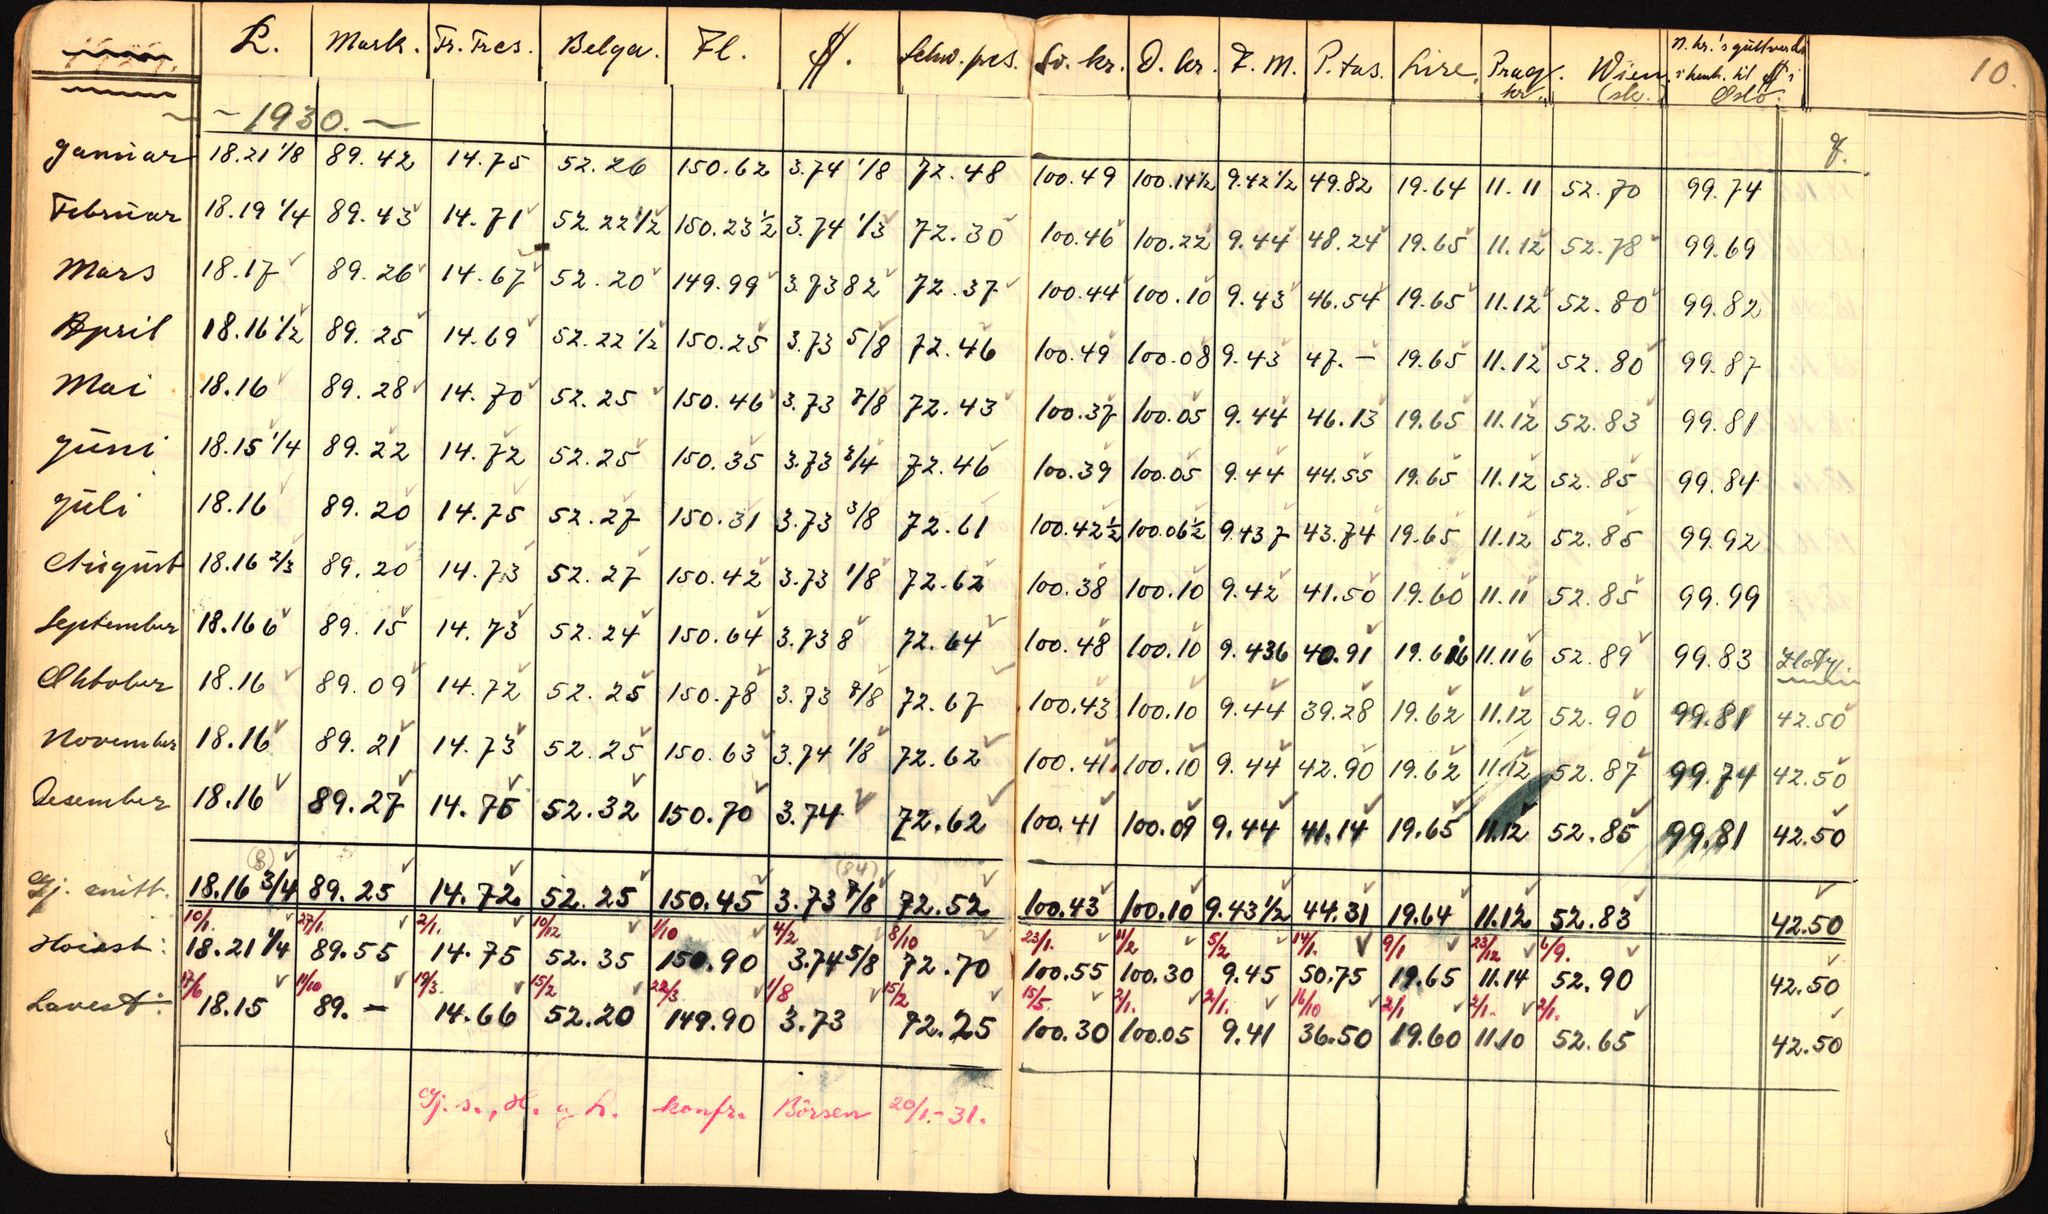 £. Mark. Fr. Frcs. Belga. Fl. $. Schw. frcs. Sv. kr. D. kr. F. M. P. tas. Lire. Prag kr. Wien (sk.) N. kr.'s gullverdi i henh. til $'s Oslo. 10.
~ 1930. ~
Januar 18.21 1/8 89.42 14.75 52.26 150.62 3.74 1/8 72.48 100.49 100.14½ 9.42½ 49.82 19.64 11.11 52.70 99.74
Februar 18.19 1/4 89.43 14.71 52.22 1/2 150.23½ 3.74 1/3 72.30 100.46 100.22 9.44 48.24 19.65 11.12 52.78 99.69
Mars 18.17 89.26 14.67 52.20 149.99 3.7382 72.37 100.44 100.10 9.43 46.54 19.65 11.12 52.80 99.82
April 18.16 1/2 89.25 14.69 52.22 1/2 150.25 3.73 5/8 72.46 100.49 100.08 9.43 47.— 19.65 11.12 52.80 99.87
Mai 18.16 89.28 14.70 52.25 150.46 3.73 7/8 72.43 100.37 100.05 9.44 46.13 19.65 11.12 52.83 99.81
Juni 18.15 1/4 89.22 14.72 52.25 150.35 3.73 3/4 72.46 100.39 100.05 9.44 44.55 19.65 11.12 52.85 99.84
Juli 18.16 89.20 14.75 52.27 150.31 3.73 3/8 72.61 100.42½ 100.06½ 9.437 43.74 19.65 11.12 52.85 99.92
August 18.16 2/3 89.20 14.73 52.27 150.42 3.73 1/8 72.62 100.38 100.10 9.42 41.50 19.60 11.11 52.85 99.99
September 18.166 89.15 14.73 52.24 150.64 3.738 72.64 100.48 100.10 9.436 40.91 19.616 11.116 52.89 99.83 Zloty.
Oktober 18.16 89.09 14.72 52.25 150.78 3.73 7/8 72.67 100.43 100.10 9.44 39.28 19.62 11.12 52.90 99.81 42.50
November 18.16 89.21 14.73 52.25 150.63 3.74 1/8 72.62 100.41 100.10 9.44 42.90 19.62 11.12 52.87 99.74 42.50
Desember 18.16 89.27 14.75 52.32 150.70 3.74 72.62 100.41 100.09 9.44 41.14 19.65 11.12 52.85 99.81 42.50
(8) (84)
Gj. snitt. 18.16 3/4 89.25 14.72 52.25 150.45 3.73 7/8 72.52 100.43 100.10 9.43 1/2 44.31 19.64 11.12 52.83 42.50
10/1. 27/1. 2/1. 10/12 1/10 4/2 8/10 23/1. 11/2 5/2 14/1. 9/1 23/12 6/9.
Høiest: 18.21 1/4 89.55 14.75 52.35 150.90 3.74 5/8 72.70 100.55 100.30 9.45 50.75 19.65 11.14 52.90 42.50
17/6 11/10 19/3 15/2 22/3 1/8 15/2 15/5. 2/1. 2/1. 16/10 2/1 2/1. 2/1.
Lavest: 18.15 89.— 14.66 52.20 149.90 3.73 72.25 100.30 100.05 9.41 36.50 19.60 11.10 52.65 42.50
Gj. s., H. og L. konfr. Börsen 20/1.-31.